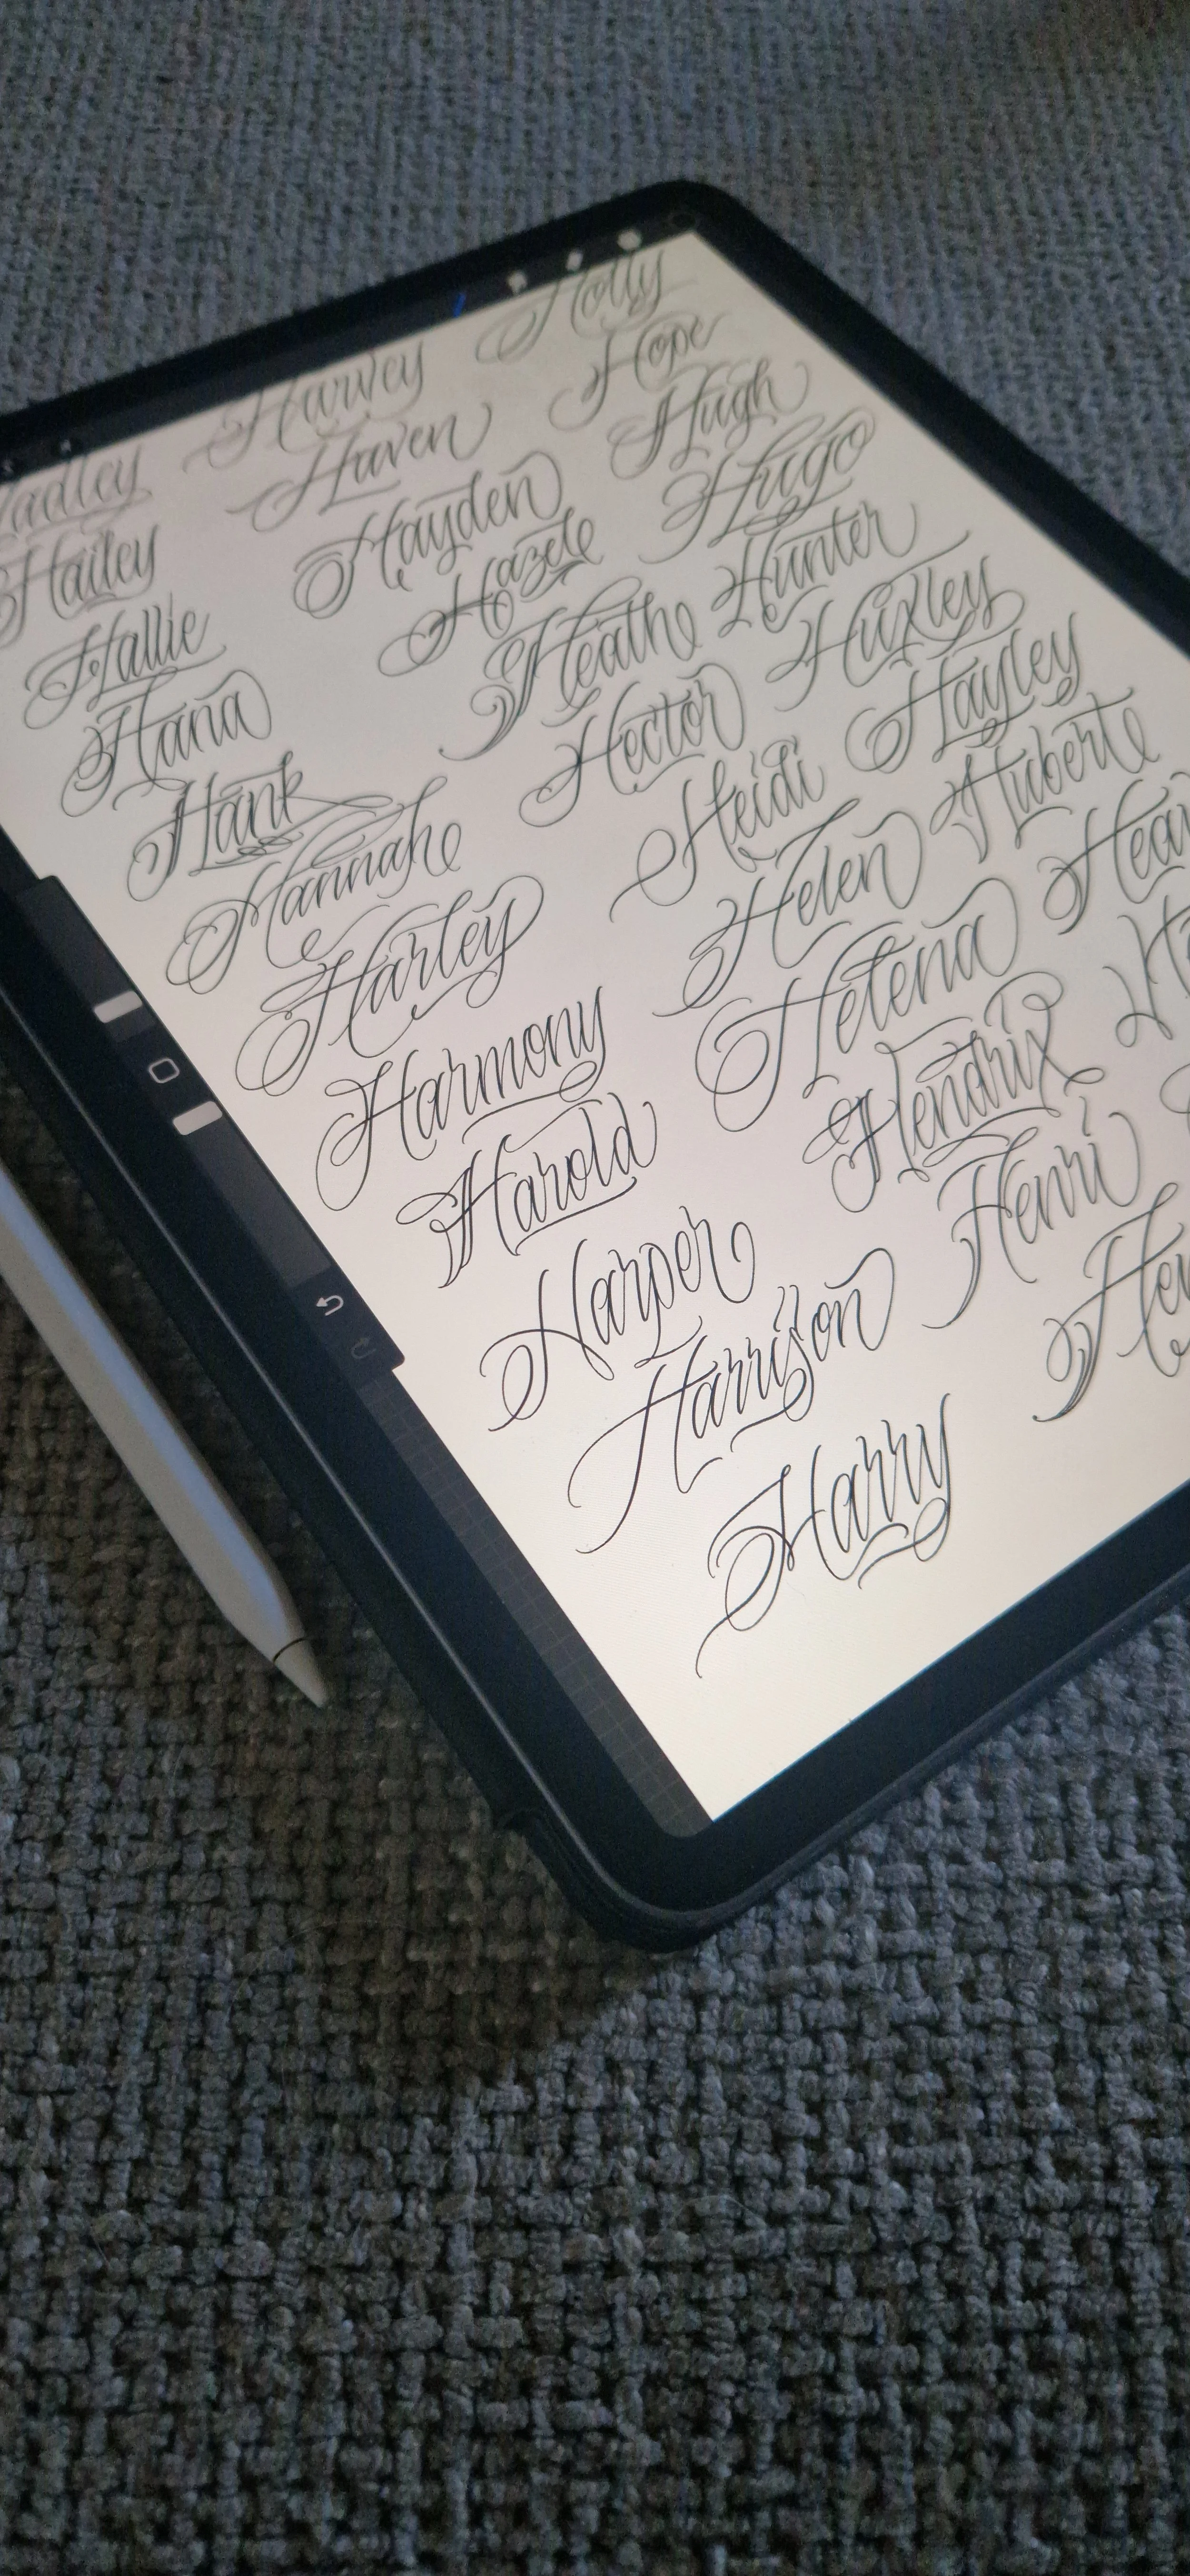 Hadley
Hailey
Hallie
Hana
Hank
Hannah
Harley
Harmony
Harold
Harper
Harrison
Harry
Harvey
Haven
Hayden
Hazel
Heath
Hector
Heidi
Helen
Helena
Hendrix
Henri
Holly
Hope
Hugh
Hugo
Hunter
Huxley
Hayley
Hubert